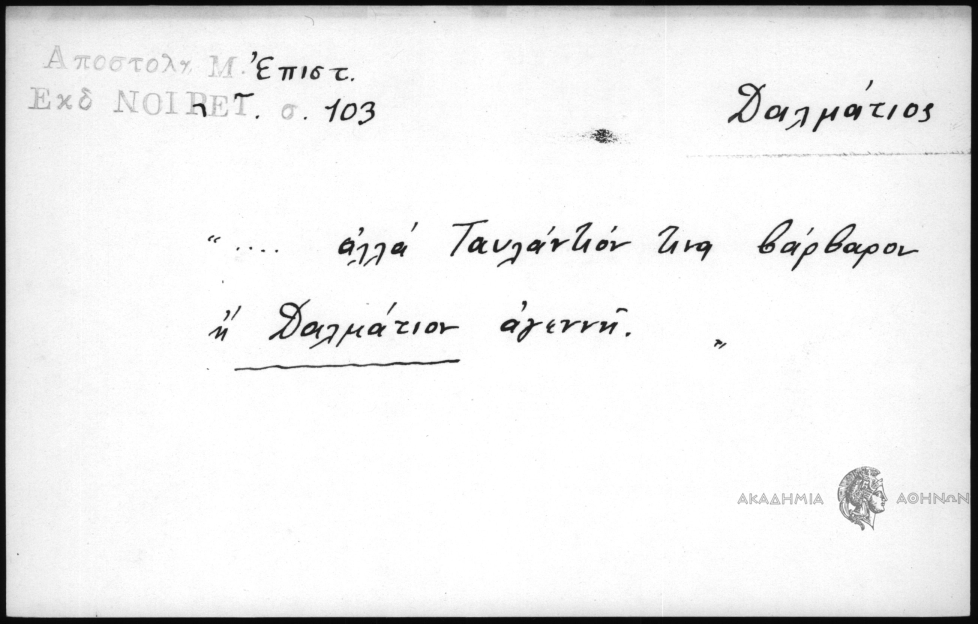 Αποστολη Μ. Ἐπιστ.
Εκδ NOIRET. σ. 103
Δαλμάτιος
“ .... ἀλλά Ταυλάντιόν τινα βάρβαρον
ἤ Δαλμάτιον ἀγεννῆ. „
ΑΚΑΔΗΜΙΑ ΑΘΗΝΩΝ